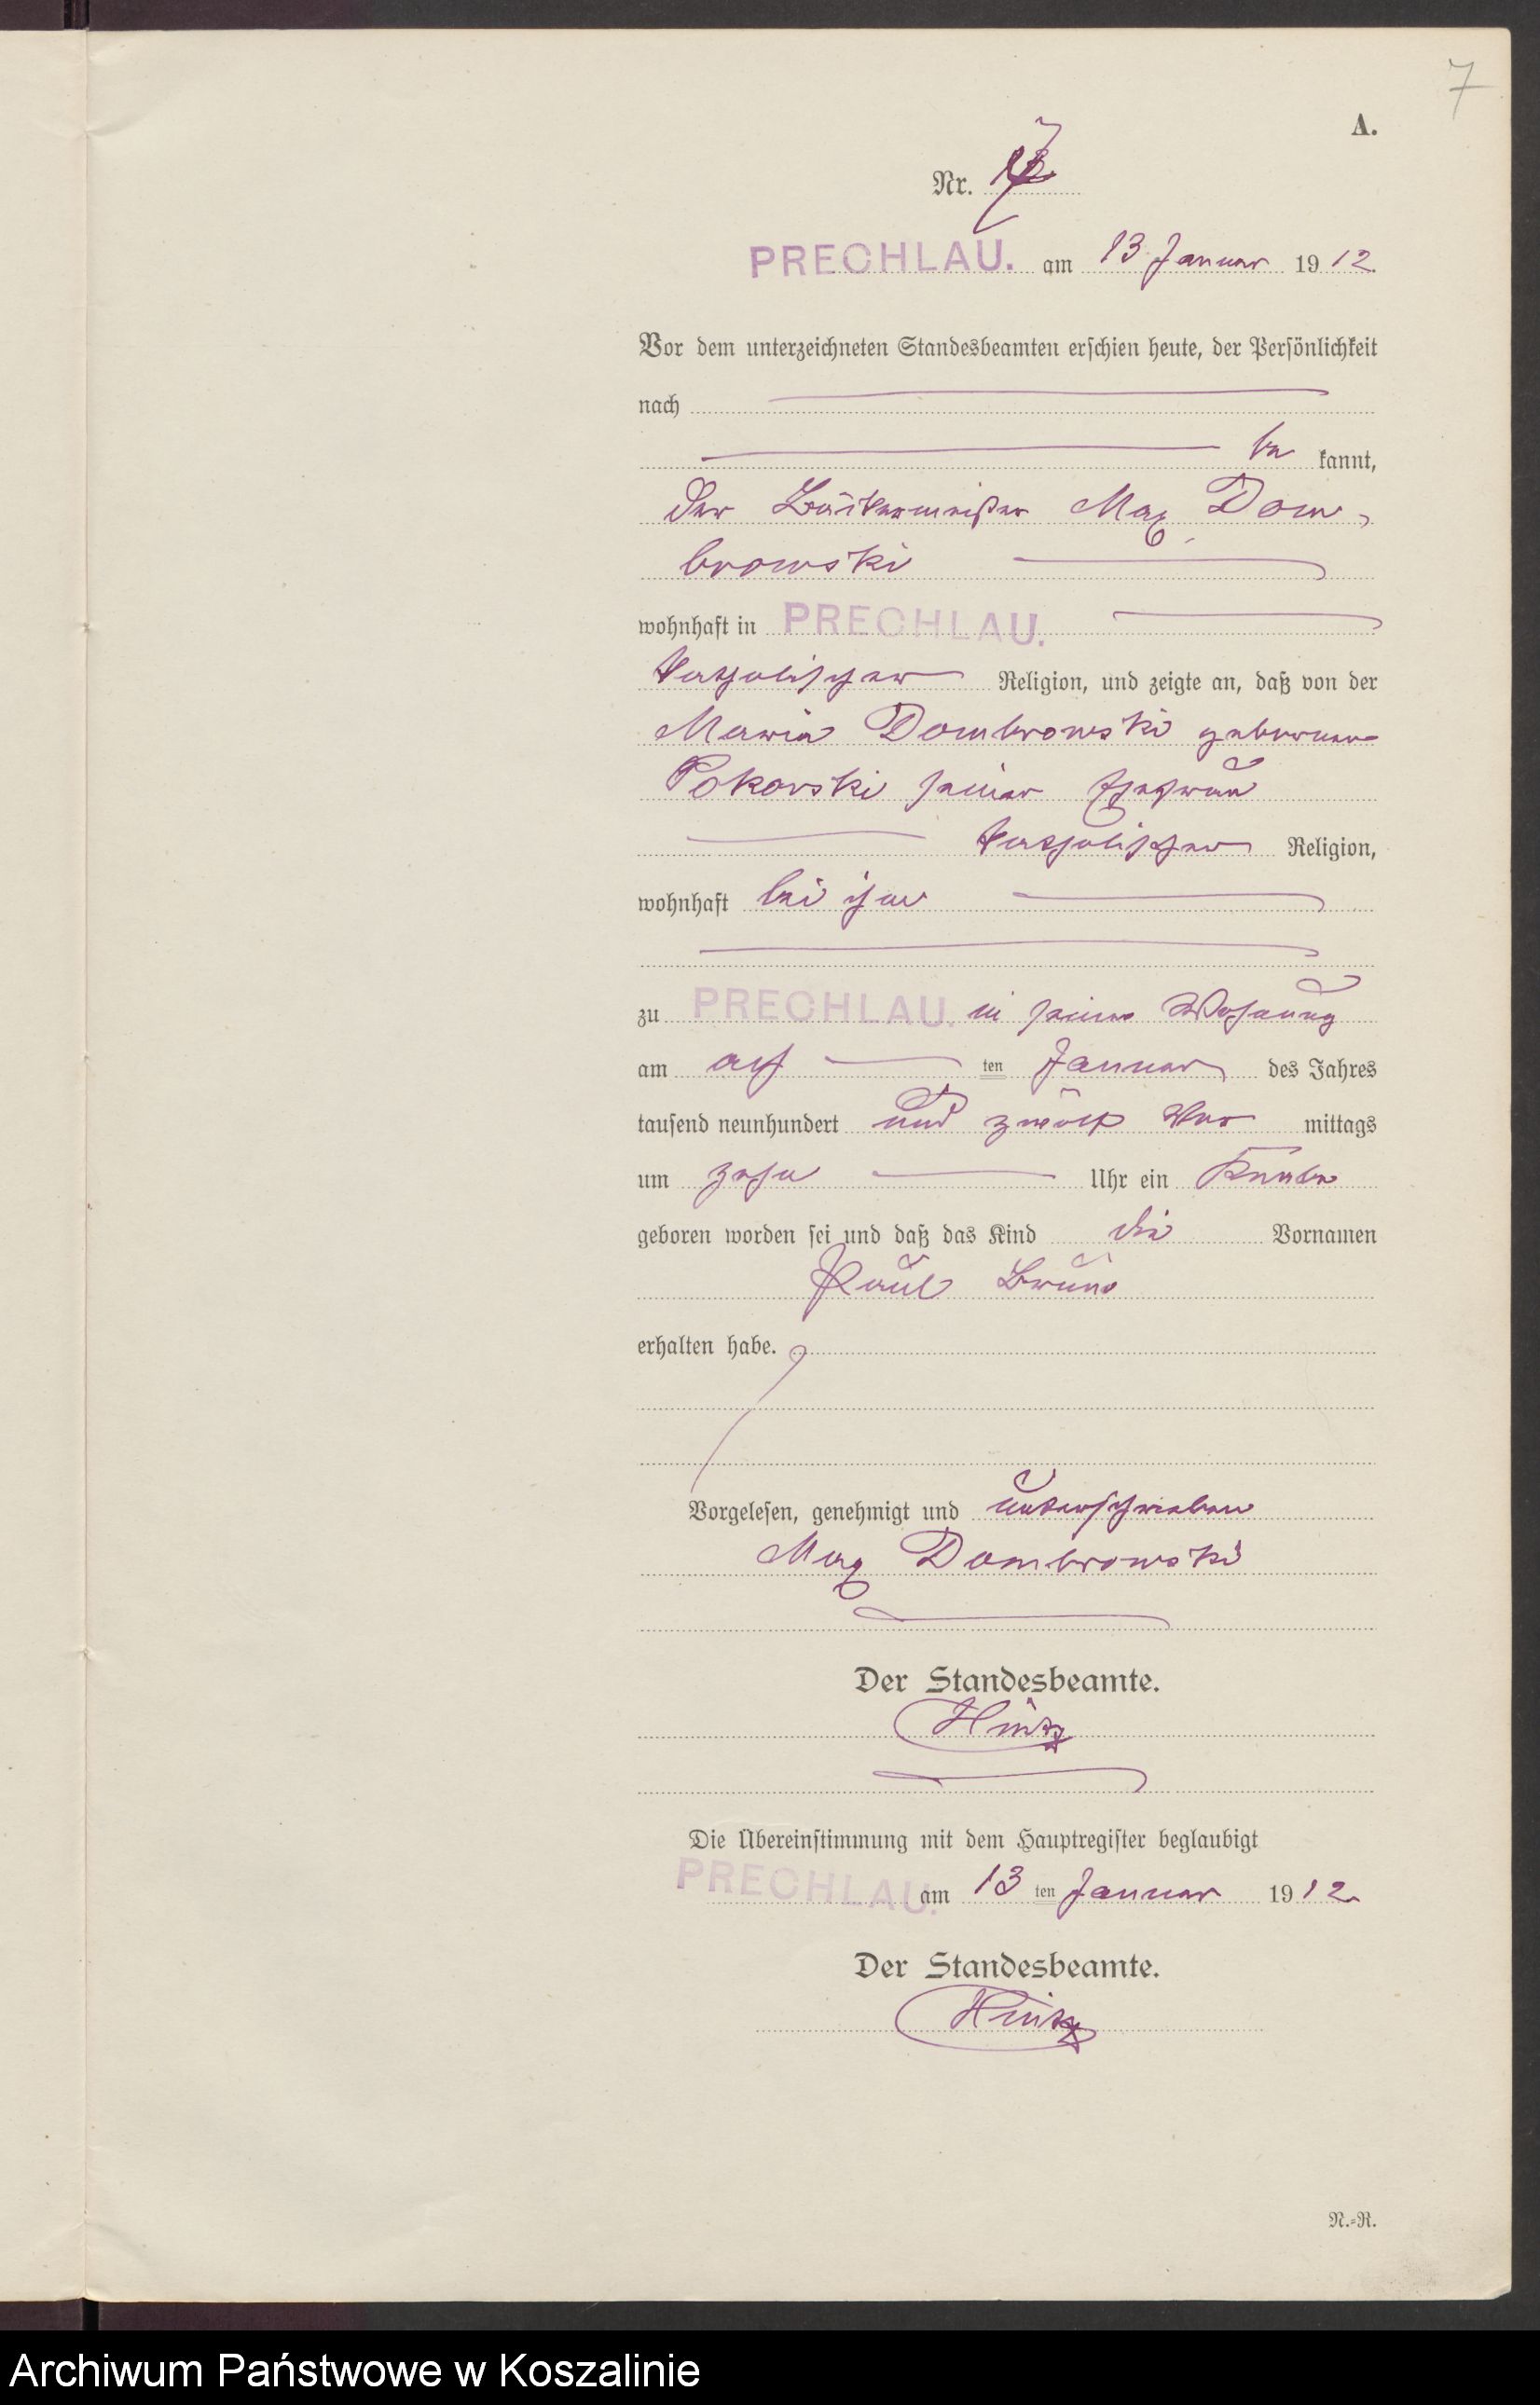 7
A.
Nr. 7
PRECHLAU. am 13 Januar 1912.
Vor dem unterzeichneten Standesbeamten erschien heute, der Persönlichkeit
nach
be kannt,
der Bäckermeister Max Dom-
browski
wohnhaft in PRECHLAU.
katholischer Religion, und zeigte an, daß von der
Maria Dombrowski geborene
Pokorski seiner Ehefrau
katholischer Religion,
wohnhaft bei ihm
zu PRECHLAU. in seiner Wohnung
am elf ten Januar des Jahres
tausend neunhundert und zwölf Vor mittags
um zehn Uhr ein Knabe
geboren worden sei und daß das Kind die Vornamen
Paul Bruno
erhalten habe.
Vorgelesen, genehmigt und unterschrieben
Max Dombrowski
Der Standesbeamte.
Hintz
Die Übereinstimmung mit dem Hauptregister beglaubigt
PRECHLAU. am 13 ten Januar 1912.
Der Standesbeamte.
Hintz
N.=R.
Archiwum Państwowe w Koszalinie